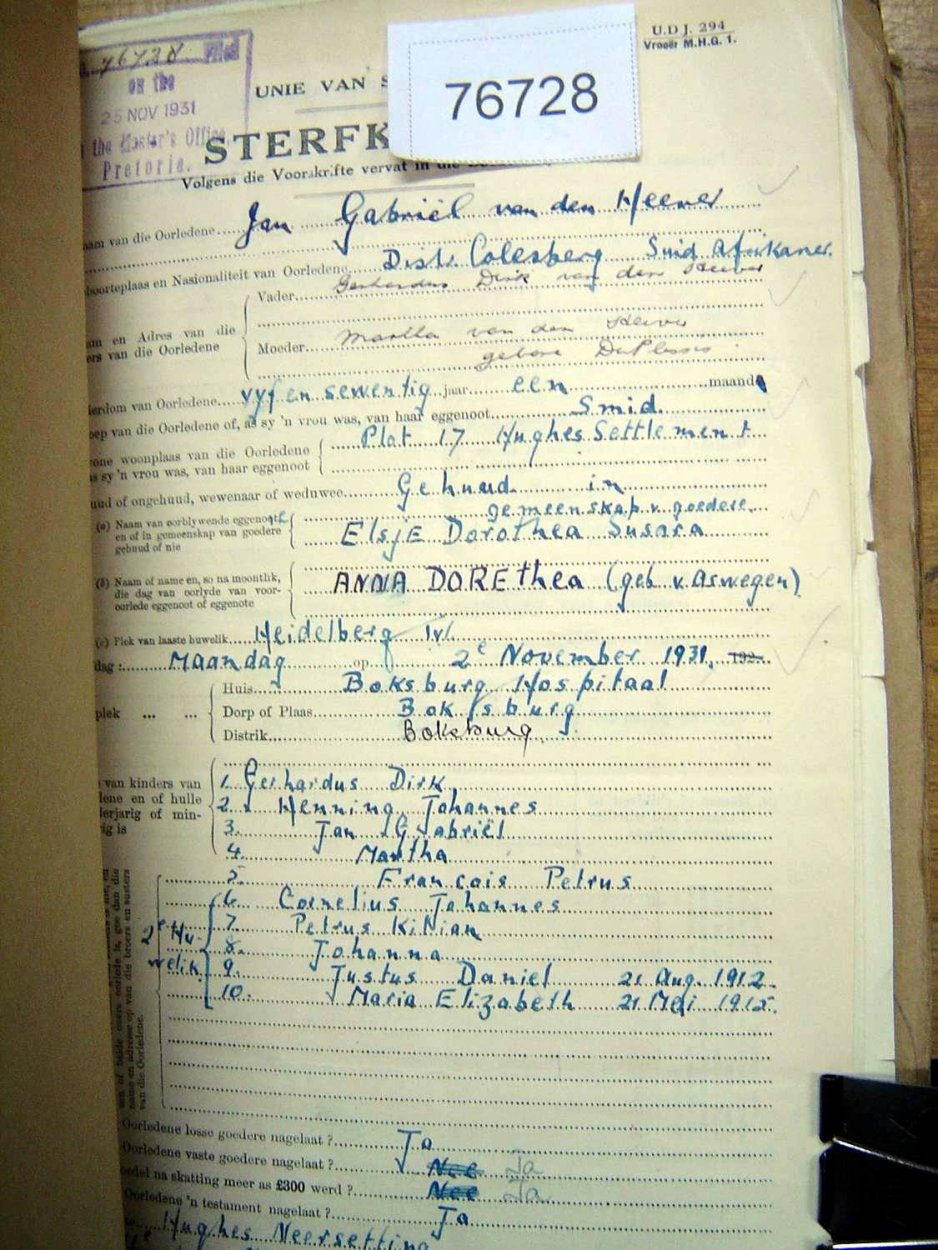 76728 Filed
on the
25 NOV 1931
the Master's Office
Pretoria.
U.D.J. 294
Vroeër M.H.G. 1.
UNIE VAN S
76728
STERFK
Volgens die Voorskrifte vervat in die
am van die Oorledene Jan Gabriël van den Heever
boorteplaas en Nasionaliteit van Oorledene Distr. Colesberg Suid Afrikaner.
Vader Gerhardus Dirk van den Heever
m en Adres van die
ers van die Oorledene
Moeder Martha van den Heever
gebore Du Plessis
erdom van Oorledene vyf en sewentig jaar een maand
oep van die Oorledene of, as sy 'n vrou was, van haar eggenoot Smid.
one woonplaas van die Oorledene
s sy 'n vrou was, van haar eggenoot
Plot 17 Hughes Settlement
uud of ongehuud, wewenaar of weduwee Gehuud in
gemeenskap v. goedere.
(a) Naam van oorblywende eggenoote
en of in gemeenskap van goedere
gehud of nie
Elsje Dorothea Susara
(b) Naam of name en, so na moontlik,
die dag van oorlyde van voor-
oorlede eggenoot of eggenote
ANNA DOREthea (geb v. Aswegen)
(c) Plek van laaste huwelik Heidelberg Tvl.
dag: Maandag op 2e November 1931, 192
Huis Boksburg Hospitaal
plek ... ... Dorp of Plaas Boksburg
Distrik Boksburg.
van kinders van
lene en of hulle
lerjarig of min-
ig is
1. Gerhardus Dirk
2. Henning Johannes
3. Jan Gabriël
4. Martha
5. Francois Petrus
6. Cornelius Johannes
7. Petrus KiNian
8. Johanna
9. Justus Daniel 21 Aug. 1912.
10. Maria Elizabeth 21 Mei 1915.
2e Hu-
welik
name en adresse op van die broers en susters
van die Oorledene.
Oorledene losse goedere nagelaat? Ja
Oorledene vaste goedere nagelaat? Nee Ja
oedel na skatting meer as £300 werd? Nee Ja
Oorledene 'n testament nagelaat? Ja
Hughes Neersetting